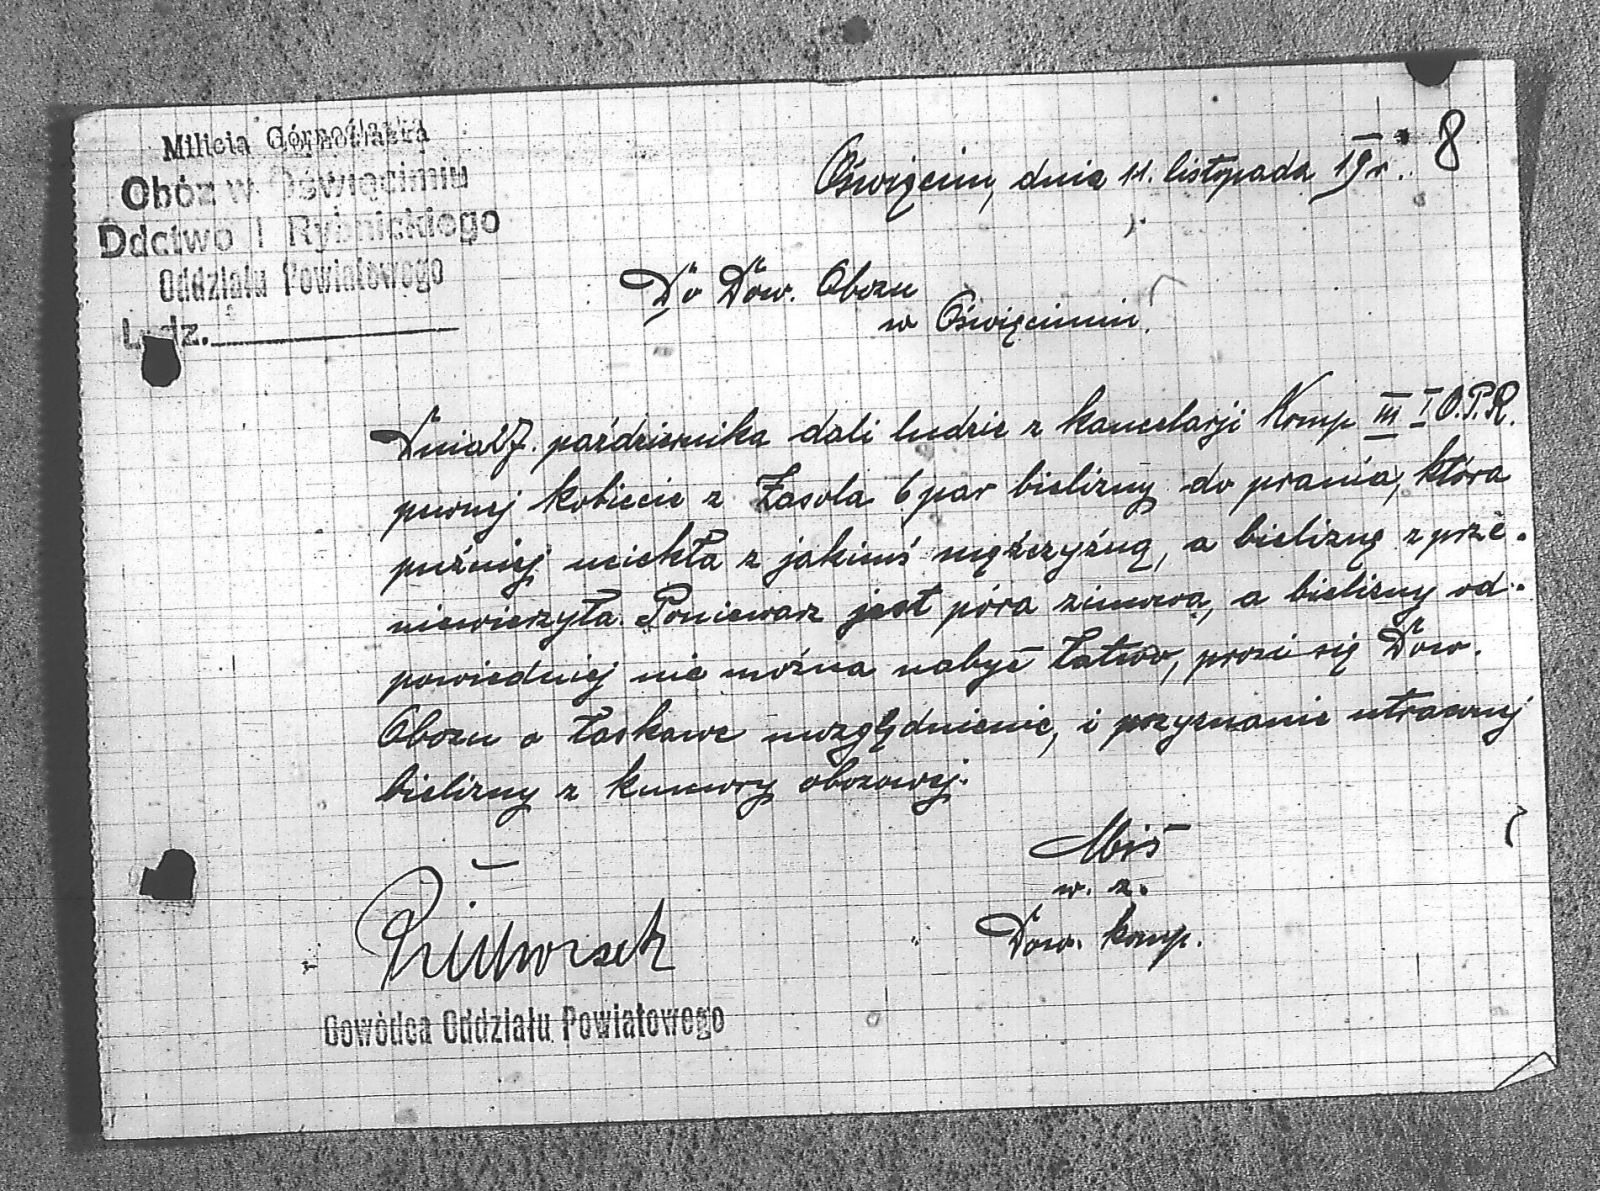 Milicia Górnośląska
Obóz w Oświęcimiu
Ddctwo I Rybnickiego
Oddziału Powiatowego
L. dz.
8
Oświęcim, dnia 11. listopada 19 r.
Do Dow. Obozu
w Oświęcimiu.
Dnia 27. października dali ludzie z kancelarji Komp III I O.P.R.
pewnej kobiecie z Zasola 6 par bielizny do prania, która
puźniej uciekła z jakimś mężczyźną, a bieliznę zprze-
niewierzyła. Poniewarz jest póra zimowa, a bielizny od-
powiedniej nie można nabyć łatwo, prosi się Dow.
Obozu o łaskawe uwzględnienie, i przyznanie utraconej
bielizny z kumory obozowej.
Miś
w. z.
Dow. komp.
Dowódca Oddziału Powiatowego